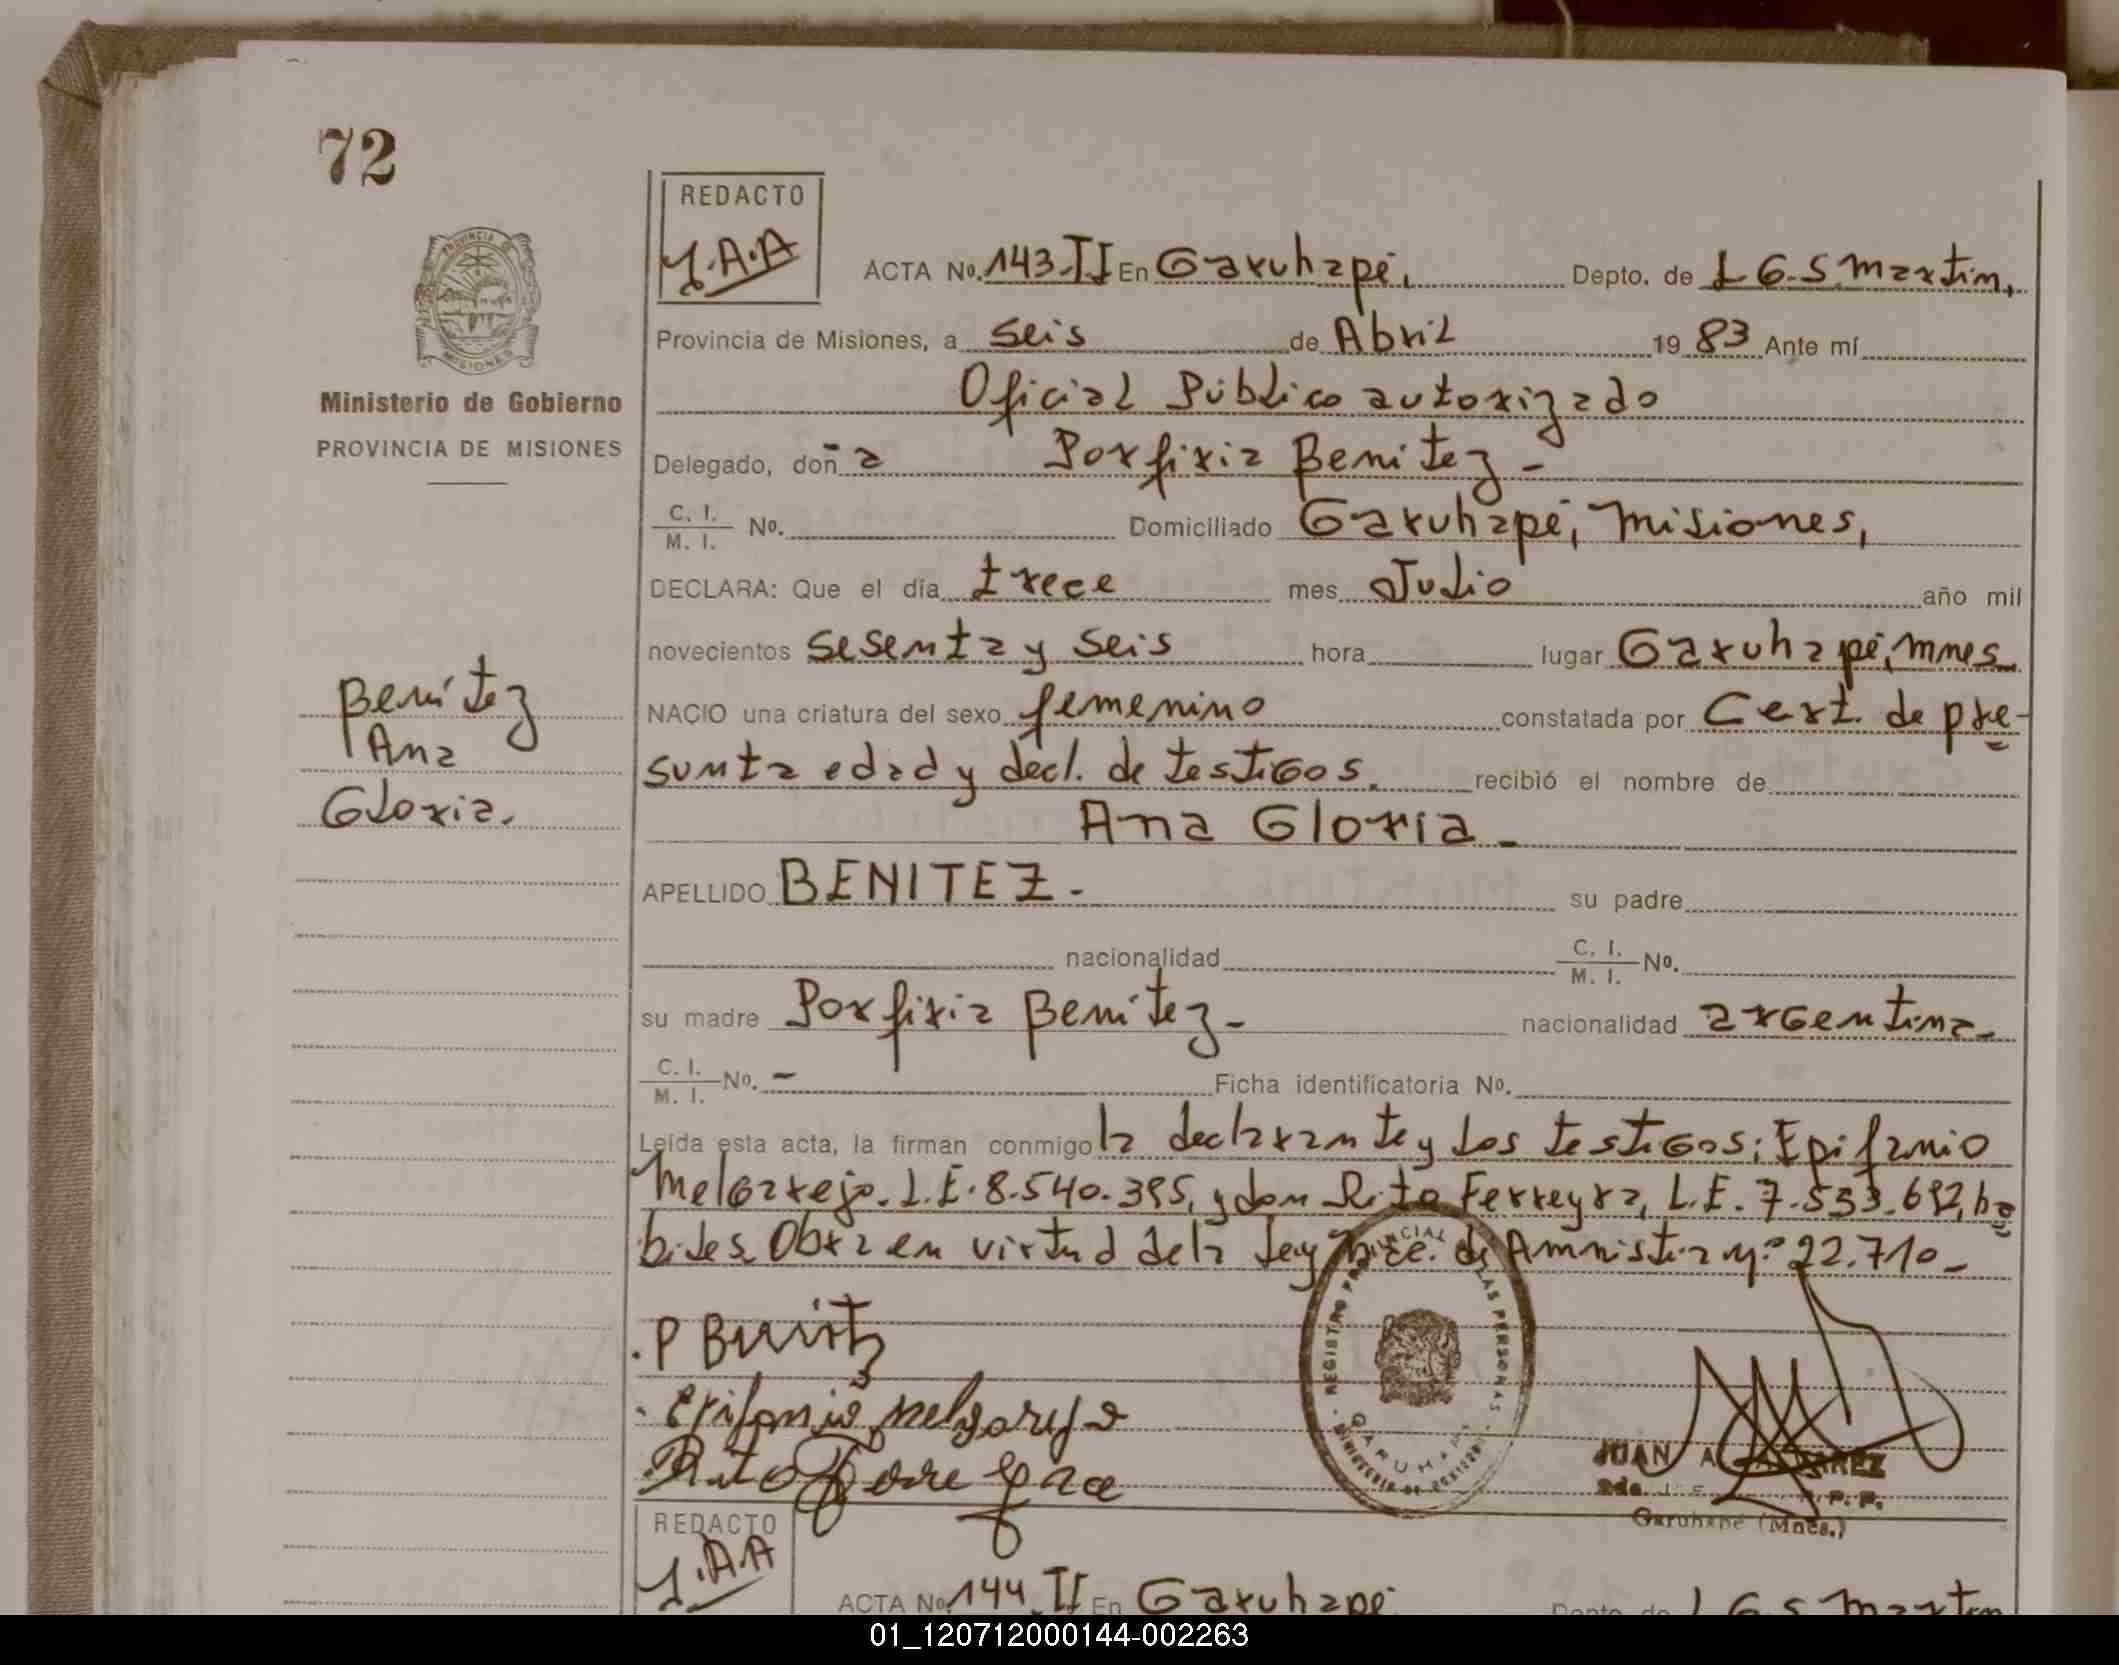 72
REDACTO
J.A.A
ACTA No. 143-II En Garuhapé, Depto. de L G. S martin,
Provincia de Misiones, a seis de Abril 1983 Ante mí
Oficial Público autorizado
Delegado, doña Porfiria Benitez -
C. I. / M. I. No. Domiciliado Garuhapé, misiones,
DECLARA: Que el día trece mes Julio año mil
novecientos sesenta y seis hora lugar Garuhapé, mnes
NACIO una criatura del sexo femenino constatada por Cert. de pre-
sunta edad y decl. de testigos. recibió el nombre de
Ana Gloria -
APELLIDO BENITEZ - su padre
nacionalidad C. I. / M. I. No.
su madre Porfiria Benitez - nacionalidad argentina -
C. I. / M. I. No. - Ficha identificatoria No.
Leída esta acta, la firman conmigo la declarante y los testigos: Epifanio
Melgarejo. L.E. 8.540.395, y don Rito Ferreyra, L.E. 7.533.692, ha
biles. Obra en virtud de la Ley de Amnistia nº 22.710 -
PROVINCIA DE
MISIONES
Ministerio de Gobierno
PROVINCIA DE MISIONES
Benitez
Ana
Gloria.
P Benitez
Epifanio melgarejo
Rito Ferreyra
REGISTRO PROVINCIAL LAS PERSONAS
GARUHAPE
MINISTERIO DE GOBIERNO
JUAN A
Garuhapé (Mnes.)
REDACTO
J.A.A
ACTA No. 144 II En Garuhapé Depto. de L G. S martin
01_120712000144-002263